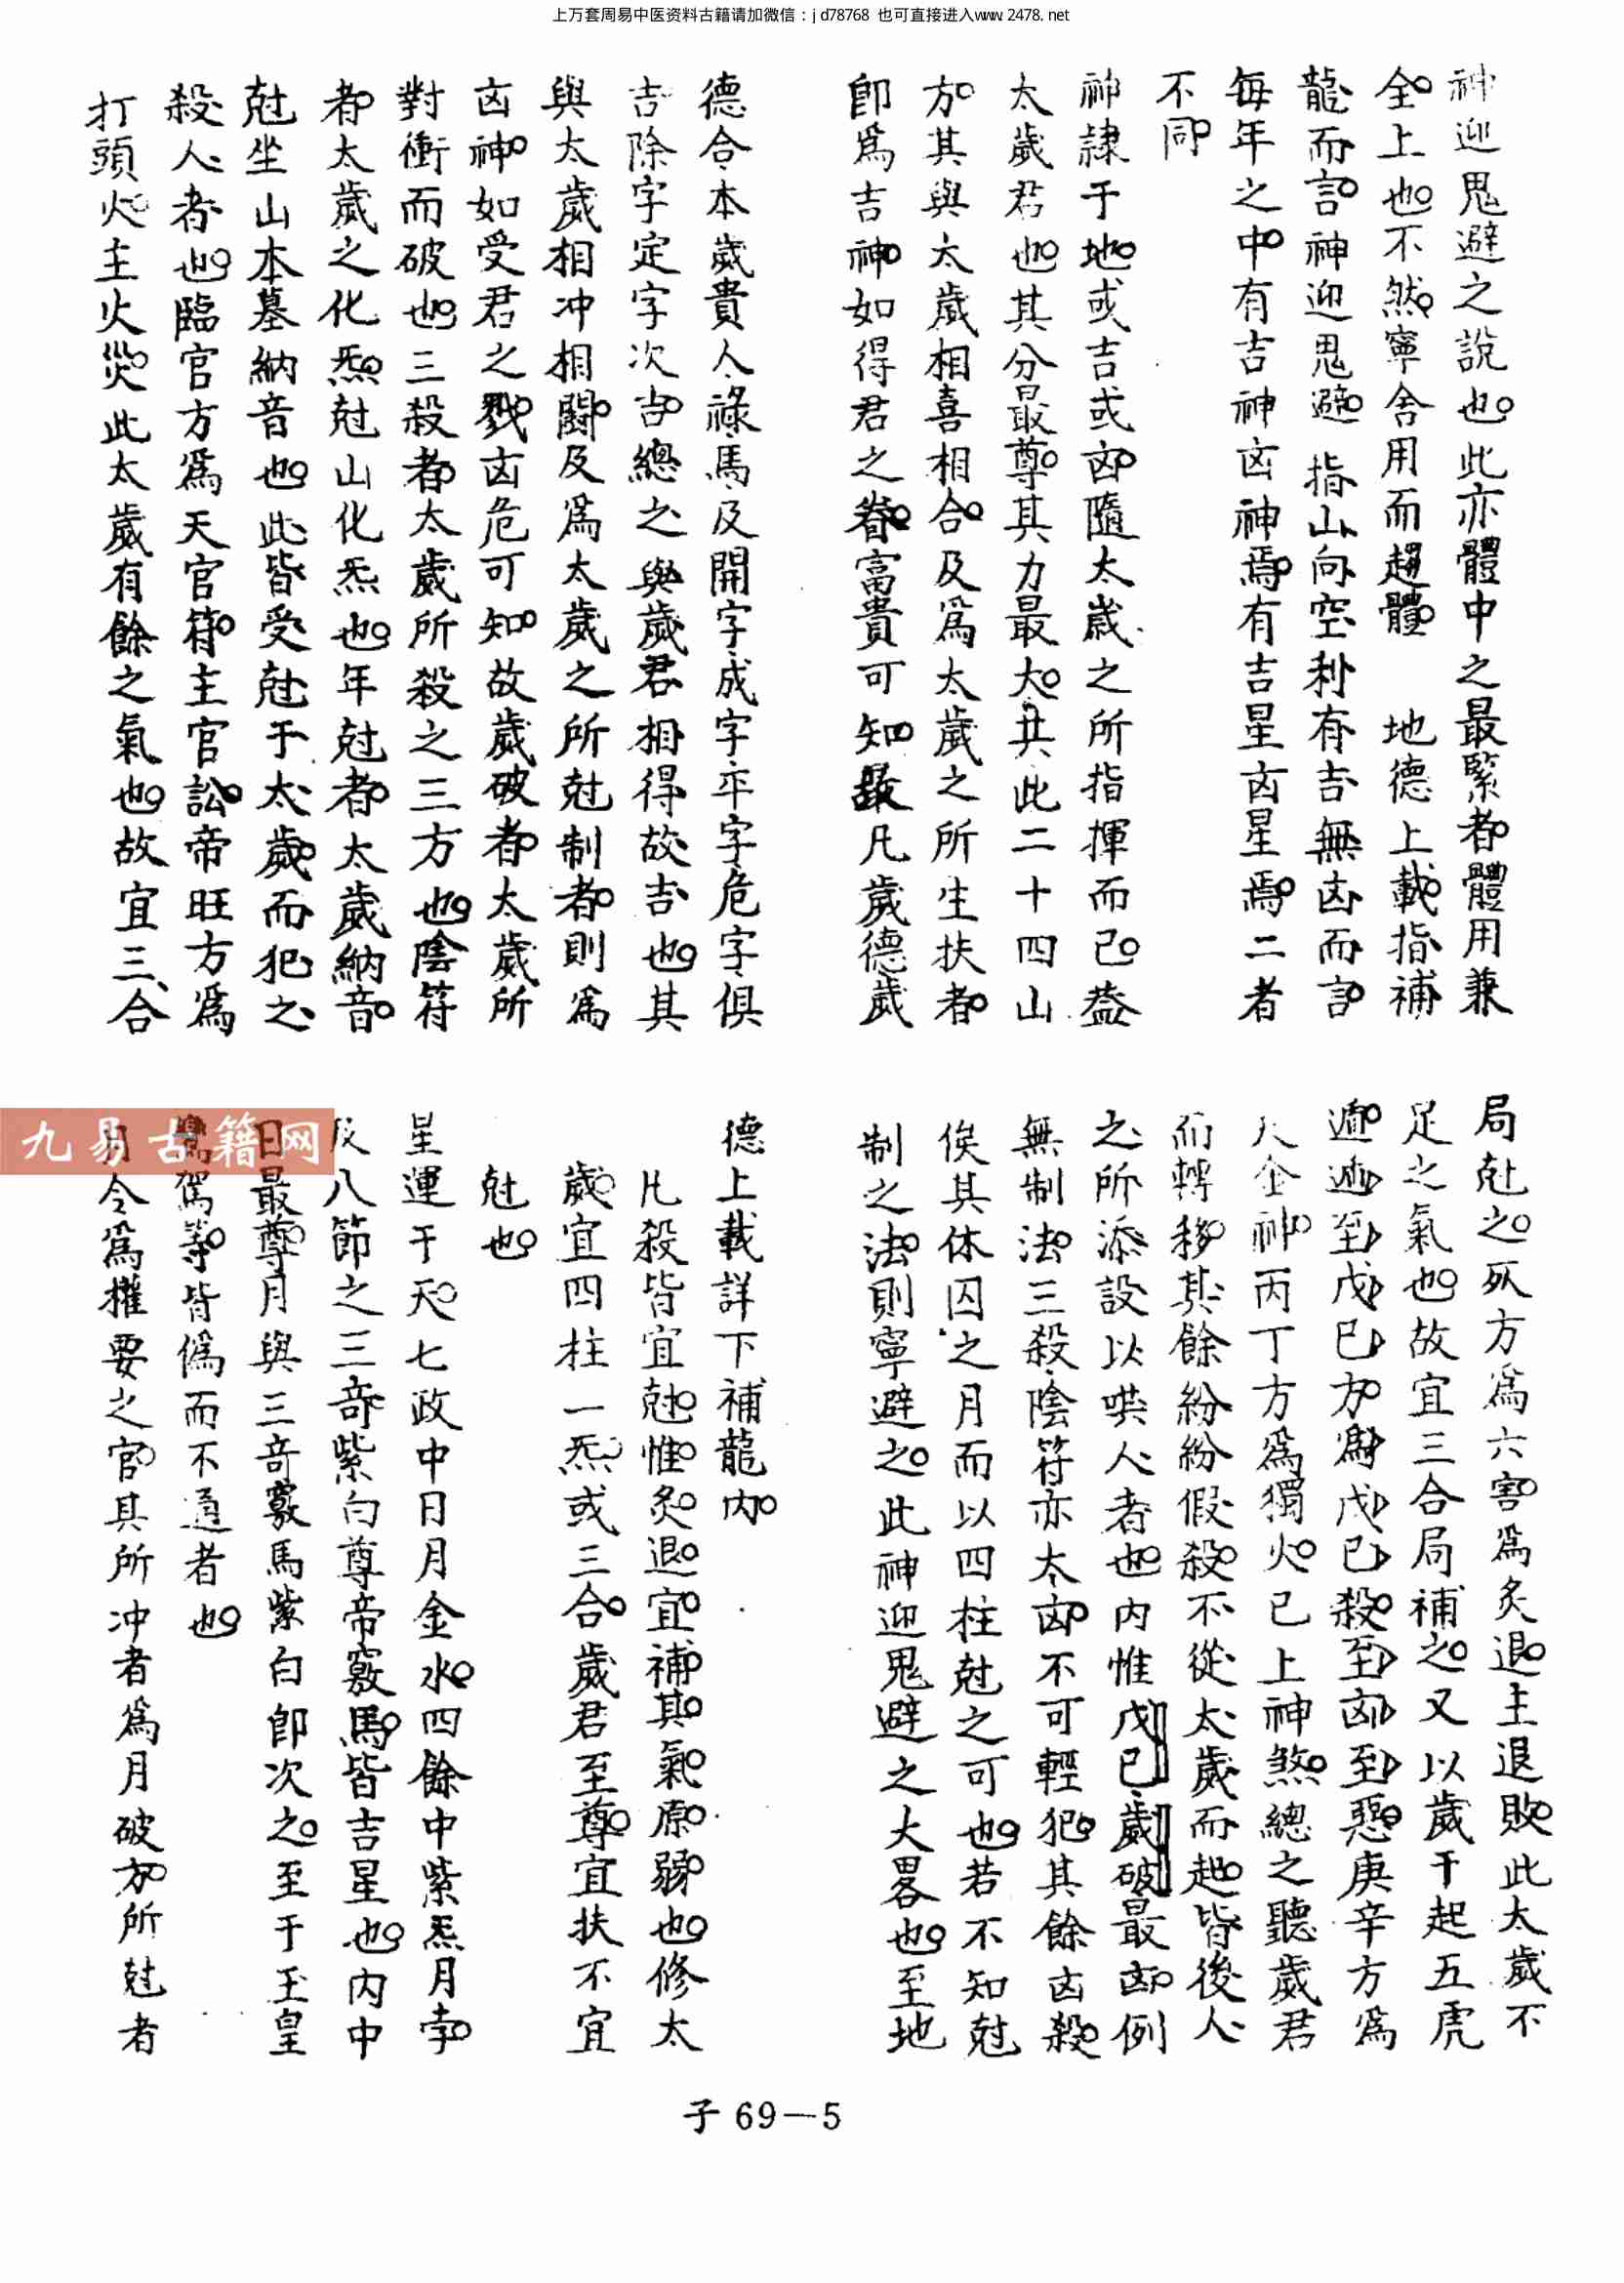 上万套周易中医资料古籍请加微信：jd78768 也可直接进入www.2478.net
神迎鬼避之說也此亦體中之最緊者體用兼
全上也不然寧舍用而趨體 地德上載指補
龍而言神迎鬼避指山向空利有吉無凶而言
每年之中有吉神凶神焉有吉星凶星焉二者
不同
神隷于地或吉或凶隨太歲之所指揮而已葢
太歲君也其分最尊其力最大共此二十四山
方其與太歲相喜相合及爲太歲之所生扶者
即爲吉神如得君之眷富貴可知故凡歲德歲
德合本歲貴人祿馬及開字成字平字危字俱
吉除字定字次吉總之與歲君相得故吉也其
與太歲相冲相鬬及爲太歲之所尅制者則爲
凶神如受君之戮凶危可知故歲破者太歲所
對衝而破也三殺者太歲所殺之三方也陰符
者太歲之化炁尅山化炁也年尅者太歲納音
尅坐山本墓納音也此皆受尅于太歲而犯之
殺人者也臨官方爲天官符主官訟帝旺方爲
打頭火主火災此太歲有餘之氣也故宜三合
局尅之死方爲六害爲炙退主退敗此太歲不
足之氣也故宜三合局補之又以歲干起五虎
遁遁至戊巳方爲戊巳殺至凶至惡庚辛方爲
天金神丙丁方爲獨火已上神煞總之聽歲君
而轉移其餘紛紛假殺不從太歲而起皆後人
之所添設以哄人者也内惟戊巳歲破最凶例
無制法三殺陰符亦太凶不可輕犯其餘凶殺
俟其休囚之月而以四柱尅之可也若不知尅
制之法則寧避之此神迎鬼避之大畧也至地
德上載詳下補龍内
凡殺皆宜尅惟炙退宜補其氣原弱也修太
歲宜四柱一炁或三合歲君至尊宜扶不宜
尅也
星運于天七政中日月金水四餘中紫炁月孛
及八節之三奇紫白尊帝竅馬皆吉星也内中
日最尊月與三奇竅馬紫白即次之至于玉皇
鑾駕等皆僞而不通者也
月令爲權要之官其所冲者爲月破方所尅者
九易古籍网
子 69－5